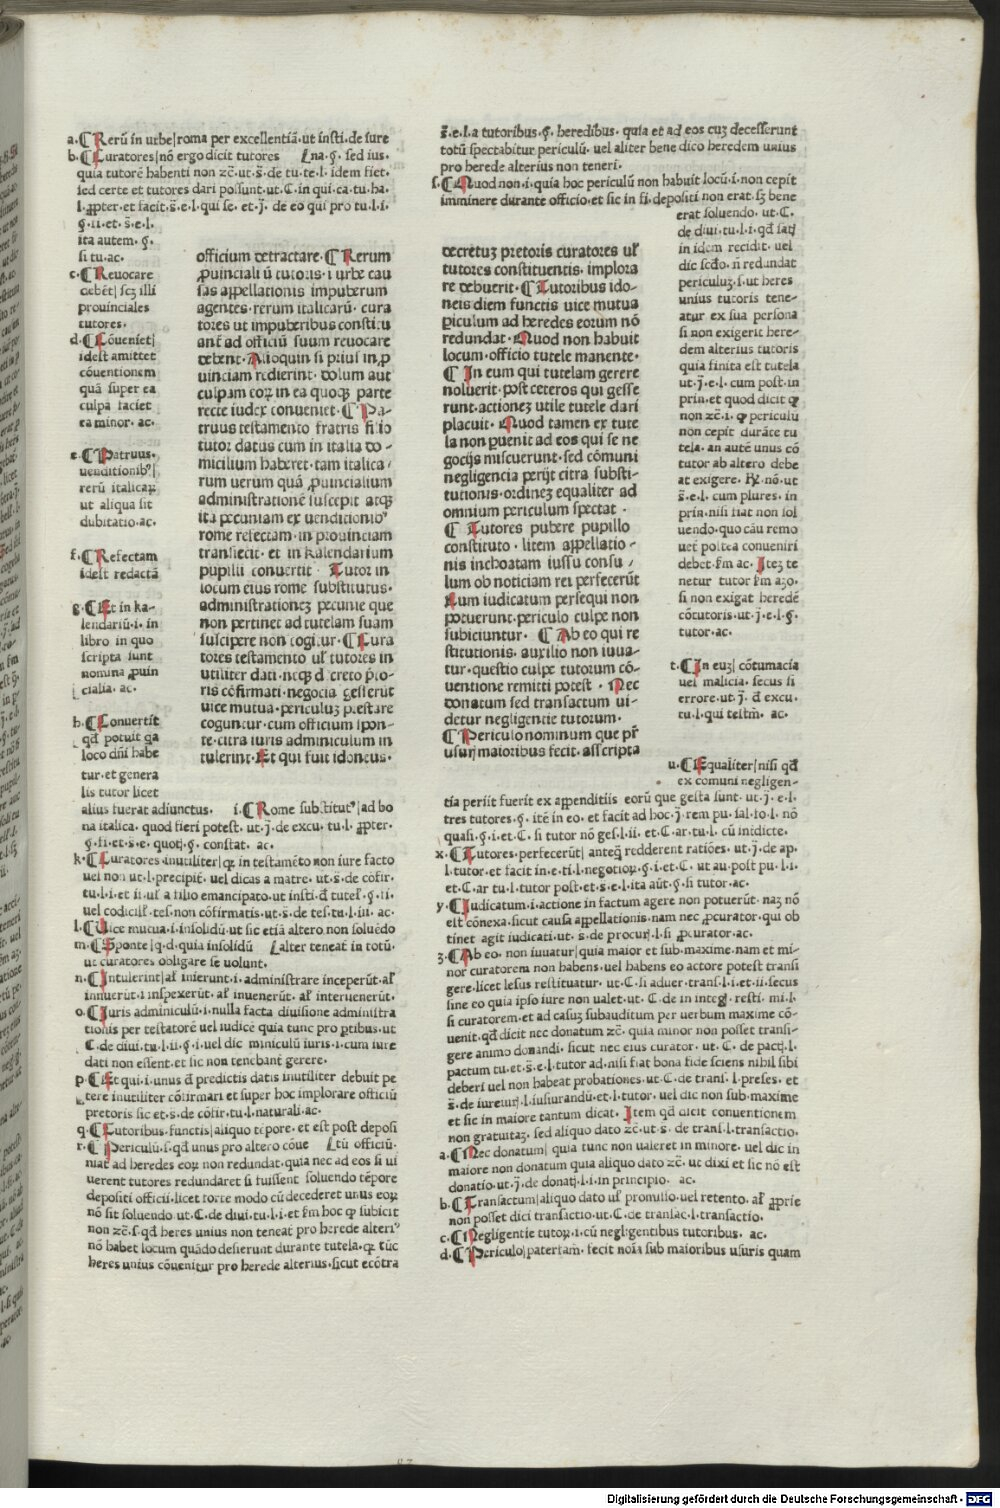 a.¶ Rerū in urbe|roma per excellentiā.ut insti.de iure
b.¶ Curatores|nō ergo dicit tutores na.§. sed ius.
quia tutorē habenti non zc̄.ut.s̄.de tu.te.l.idem fiet.
sed certe et tutores dari possunt.ut.C.in qui.ca.tu.ha.
l.ꝓpter.et facit.s̄.e.l.qui se.et.j̄.de eo qui pro tu.l.i.
§.ii.et.s̄.e.l.
ita autem.§.
si tu.ac.
c.¶ Reuocare
debēt| scꝫ illi
prouinciales
tutores.
d.¶ Cōueniet|
idest amittet
cōuentionem
quā super ea
culpa faciet
ea minor. ac.
e.¶ Patruus.
uenditionibꝰ|
rerū italicaꝝ
ut aliqua sit
dubitatio.ac.
f.¶ Refectam
idest redactā
g.¶ Et in ka-
lendariū.i.in
libro in quo
scripta sunt
nomina ꝓuin
cialia. ac.
h.¶ Conuertit
qđ potuit ꝗa
loco dn̄i habe
tur.et genera
lis tutor licet
alius fuerat adiunctus. i.¶ Rome substitutꝰ|ad bo
na italica. quod fieri potest.ut.j̄.de excu.tu.l.ꝓpter.
§.fi.et.s̄.e. quotj.§. constat. ac.
k.¶ Curatores inutiliter|qꝛ in testamēto non iure facto
uel non ut.l.precipit. uel dicas a matre.ut.s̄.de cōfir.
tu.l.i.et ii.ul̄ a filio emancipato.ut insti.đ tutel̄.§.ii.
uel codicill̄.tes̄.non cōfirmatis.ut.s̄.de tes̄.tu.l.iii.ac.
l.¶ Vice mutua.i.insolidū.ut sic etiā altero non soluēdo
m.¶ Sponte|q.d.quia insolidū alter teneat in totū.
ut curatores obligare se uolunt.
n.¶ Intulerint|al̄ inierunt.i.administrare inceperūt.al̄
innuerūt.i inspexerūt. al̄ inuenerūt. al̄ interuenerūt.
o.¶ Iuris adminiculū.i.nulla facta diuisione administra
tionis per testatorē uel iudicē quia tunc pro ꝑtibus.ut
C.de diui.tu.l.ii.§.i.uel dic miniculū iuris.i.cum iure
dati non essent.et sic non tenebant gerere.
p.¶ Et qui.i.unus đ predictis datis inutiliter debuit pe
tere inutiliter cōfirmari et super hoc implorare officiū
pretoris sic et.s̄.de cōfir.tu.l.naturali.ac.
q.¶ Tutoribus.functis|aliquo tēpore.et est post deposi
r.¶ Periculū.s.qđ unus pro altero cōue tū officiū.
niat ad heredes eoꝝ non redundat.quia nec ad eos si ui
uerent tutores redundaret si fuissent soluendo tēpore
depositi officii.licet forte modo cū decederet unus eoꝝ
nō sit soluendo.ut.C.de diui.tu.l.i.et ẜm hoc ꝙ subicit
non zc̄.s.qđ heres unius non teneat pro herede alteriꝰ
nō habet locum quādo desierunt durante tutela.qꝛ tūc
heres unius cōuenitur pro herede alterius.sicut ecōtra
officium detractare.¶ Rerum
ꝓuincialiū tutoris.i urbe cau
sas appellationis impuberum
agentes.rerum italicarū.cura
tores ut impuberibus constitu
ant̄ ad officiū suum reuocare
debent.Alioquin si prius in.ꝓ
uinciam redierint.dolum aut
culpam eoꝝ in ea quoqꝫ parte
recte iudex conueniet.¶ Pa-
truus testamento fratris filio
tutor datus cum in italia do-
micilium haberet.tam italica/
rum uerum quā ꝓuincialium
administrationē suscepit atqꝫ
ita pecuniam ex uenditionibꝰ
rome refectam.in prouinciam
traniecit. et in kalendarium
pupilli conuertit. Tutor in
locum eius rome substitutus.
administrationeꝫ pecunie que
non pertinet ad tutelam suam
suscipere non cogitur.¶ Cura
tores testamento ul̄ tutores in
utiliter dati.necqꝫ decreto p̄to-
ris cōfirmati negocia gesserūt
uice mutua.periculuꝫ prestare
coguntur.cum officium spon-
te.citra iuris adminiculum in
tulerint.Et qui fuit idoneus.
s̄.e.l.a tutoribus.§. heredibus. quia et ad eos cuꝫ decesserunt
totū spectabitur periculū. uel aliter bene dico heredem unius
pro herede alterius non teneri.
s.¶ Quod non.i.quia hoc periculū non habuit locū.i.non cepit
imminere durante officio.et sic in fi.depositi non erat.sꝫ bene
erat soluendo. ut.C.
de diui.tu.l.i. qđ satj
in idem recidit. uel
dic scđo. n̄ redundat
periculuꝫ.s.ut heres
unius tutoris tene-
atur ex sua persona
si non exigerit here-
dem alterius tutoris
quia finita est tutela
ut.j̄.e.l.cum post.in
prin.et quod dicit ꝙ
non zc̄.i. ꝙ periculū
non cepit durāte tu
tela.an autē unus cō
tutor ab altero debe
at exigere. ℟.nō.ut
s̄.e.l.cum plures.in
prin.nisi fiat non sol
uendo.quo cāu remo
uet̄ postea conueniri
debet.ẜm ac. Iteꝫ te
netur tutor ẜm aꝫo.
si non exigat heredē
cōtutoris.ut.j̄.e.l.§.
tutor.ac.
t.¶ In euꝫ| cōtumacia
uel malicia.secus si
errore.ut.j̄.đ excu.
tu.l.qui testm̄. ac.
u.¶ Equaliter|nisi qđ
ex comuni negligen-
decretuꝫ pretoris curatores ul̄
tutores constituentis.implora
re debuerit.¶ Tutoribus ido-
neis diem functis uice mutua
ꝑiculum ad heredes eorum nō
redundat.Quod non habuit
locum.officio tutele manente.
¶ In eum qui tutelam gerere
noluerit.post ceteros qui gesse
runt.actioneꝫ utile tutele dari
placuit.Quod tamen ex tute
la non puenit ad eos qui se ne
gocijs miscuerunt.sed cōmuni
negligencia perijt citra substi-
tutionis.ordineꝫ equaliter ad
omnium periculum spectat.
¶ Tutores pubere pupillo
constituto.litem appellatio-
nis inchoatam iussu consu/
lum ob noticiam rei perfecerūt
Cum iudicatum persequi non
potuerunt.periculo culpe non
subiciuntur. ¶ Ab eo qui re
stitutionis.auxilio non iuua-
tur.questio culpe tutorum cō-
uentione remitti potest. Nec
donatum sed transactum ui-
detur negligentie tutorum.
¶ Periculo nominum que pr̄
usurj maioribus fecit.asscripta
tia periit fuerit ex appenditiis eorū que gesta sunt.ut.j̄.e.l.
tres tutores.§.itē in eo.et facit ad hoc.j̄.rem pu.sal.fo.l.nō
quasi.§.i.et.C.si tutor nō ges̄.l.ii.et.C.ar.tu.l.cū intdicte.
x.¶ Tutores.perfecerūt| anteqꝫ redderent ratiōes.ut.j̄.de ap.
l.tutor.et facit in.e.ti.l.negotioꝝ.§.i.et.C.ut au.post pu.l.i.
et.C.ar tu.l.tutor post et.s̄.e.l.ita aūt.§.si tutor.ac.
y.¶ Iudicatum.i.actione in factum agere non potuerūt.naꝫ nō
est cōnexa.sicut causa appellationis.nam nec ꝓcurator.qui ob
tinet agit iudicati.ut.s̄.de procurj.l.si ꝓcurator.ac.
ꝫ.¶ Ab eo.non iuuatur|quia maior et sub.maxime.nam et mi-
nor curatorem non habens.uel habens eo actore potest transi
gere.licet lesus restituatur.ut.C.si aduer.trans̄.l.i.et.ii.secus
sine eo quia ipso iure non ualet.ut.C.de in integj̄.resti.mi.l.
si curatorem.et ad casuꝫ subauditum per uerbum maxime cō-
uenit.qđ dicit nec donatum zc̄. quia minor non posset transi-
gere animo donandi. sicut nec eius curator.ut.C. de pactj.l.
pactum tu.et.s̄.e.l.tutor ad.nisi fiat bona fide sciens nihil sibi
deberi uel non habeat probationes.ut.C.de trans̄.l.preses.et
s̄.de iureiurj.l.iusiurandū.et.l.tutor.uel dic non sub.maxime
et sic in maiore tantum dicat. Item qđ dicit conuentionem
non gratuitaꝫ.sed aliquo dato zc̄.ut.s̄. de trans̄.l.transactio.
a.¶ Nec donatum| quia tunc non ualeret in minore. uel dic in
maiore non donatum quia aliquo dato zc̄.ut dixi et sic nō est
donatio.ut.j̄.de donatj.l.i.in principio. ac.
b.¶ Transactum|aliquo dato ul̄ promisso.uel retento. al̄ ꝓprie
non posset dici transactio.ut.C.de transac.l.transactio.
c.¶ Negligentie tutoꝝ.i.cū negligentibus tutoribus. ac.
d.¶ Periculo|paternam. fecit noīa sub maioribus usuris quam
Digitalisierung gefördert durch die Deutsche Forschungsgemeinschaft - DFG